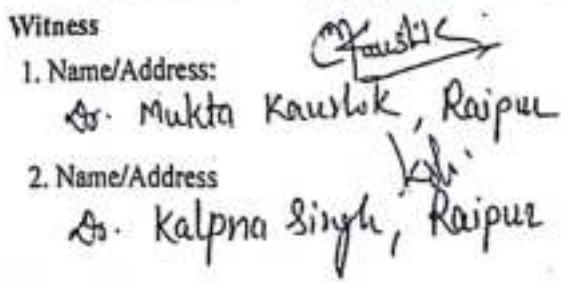 Witness
1. Name/Address:
Dr. Mukta Kaushik, Raipur
2. Name/Address
Dr. Kalpna Singh, Raipur